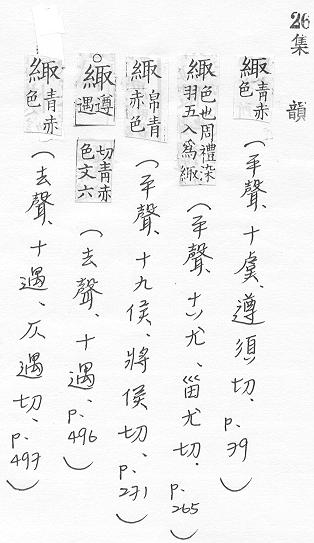 26
集韻
緅青赤色(平聲、十虞、遵須切、p.79)
緅色也周禮染羽五入爲緅(平聲、十八尤、甾尤切、p.265)
緅帛青赤色(平聲、十九侯、將侯切、p.271)
緅遵遇切青赤色文六(去聲、十遇、p.496)
緅青赤色(去聲、十遇、仄遇切、p.497)